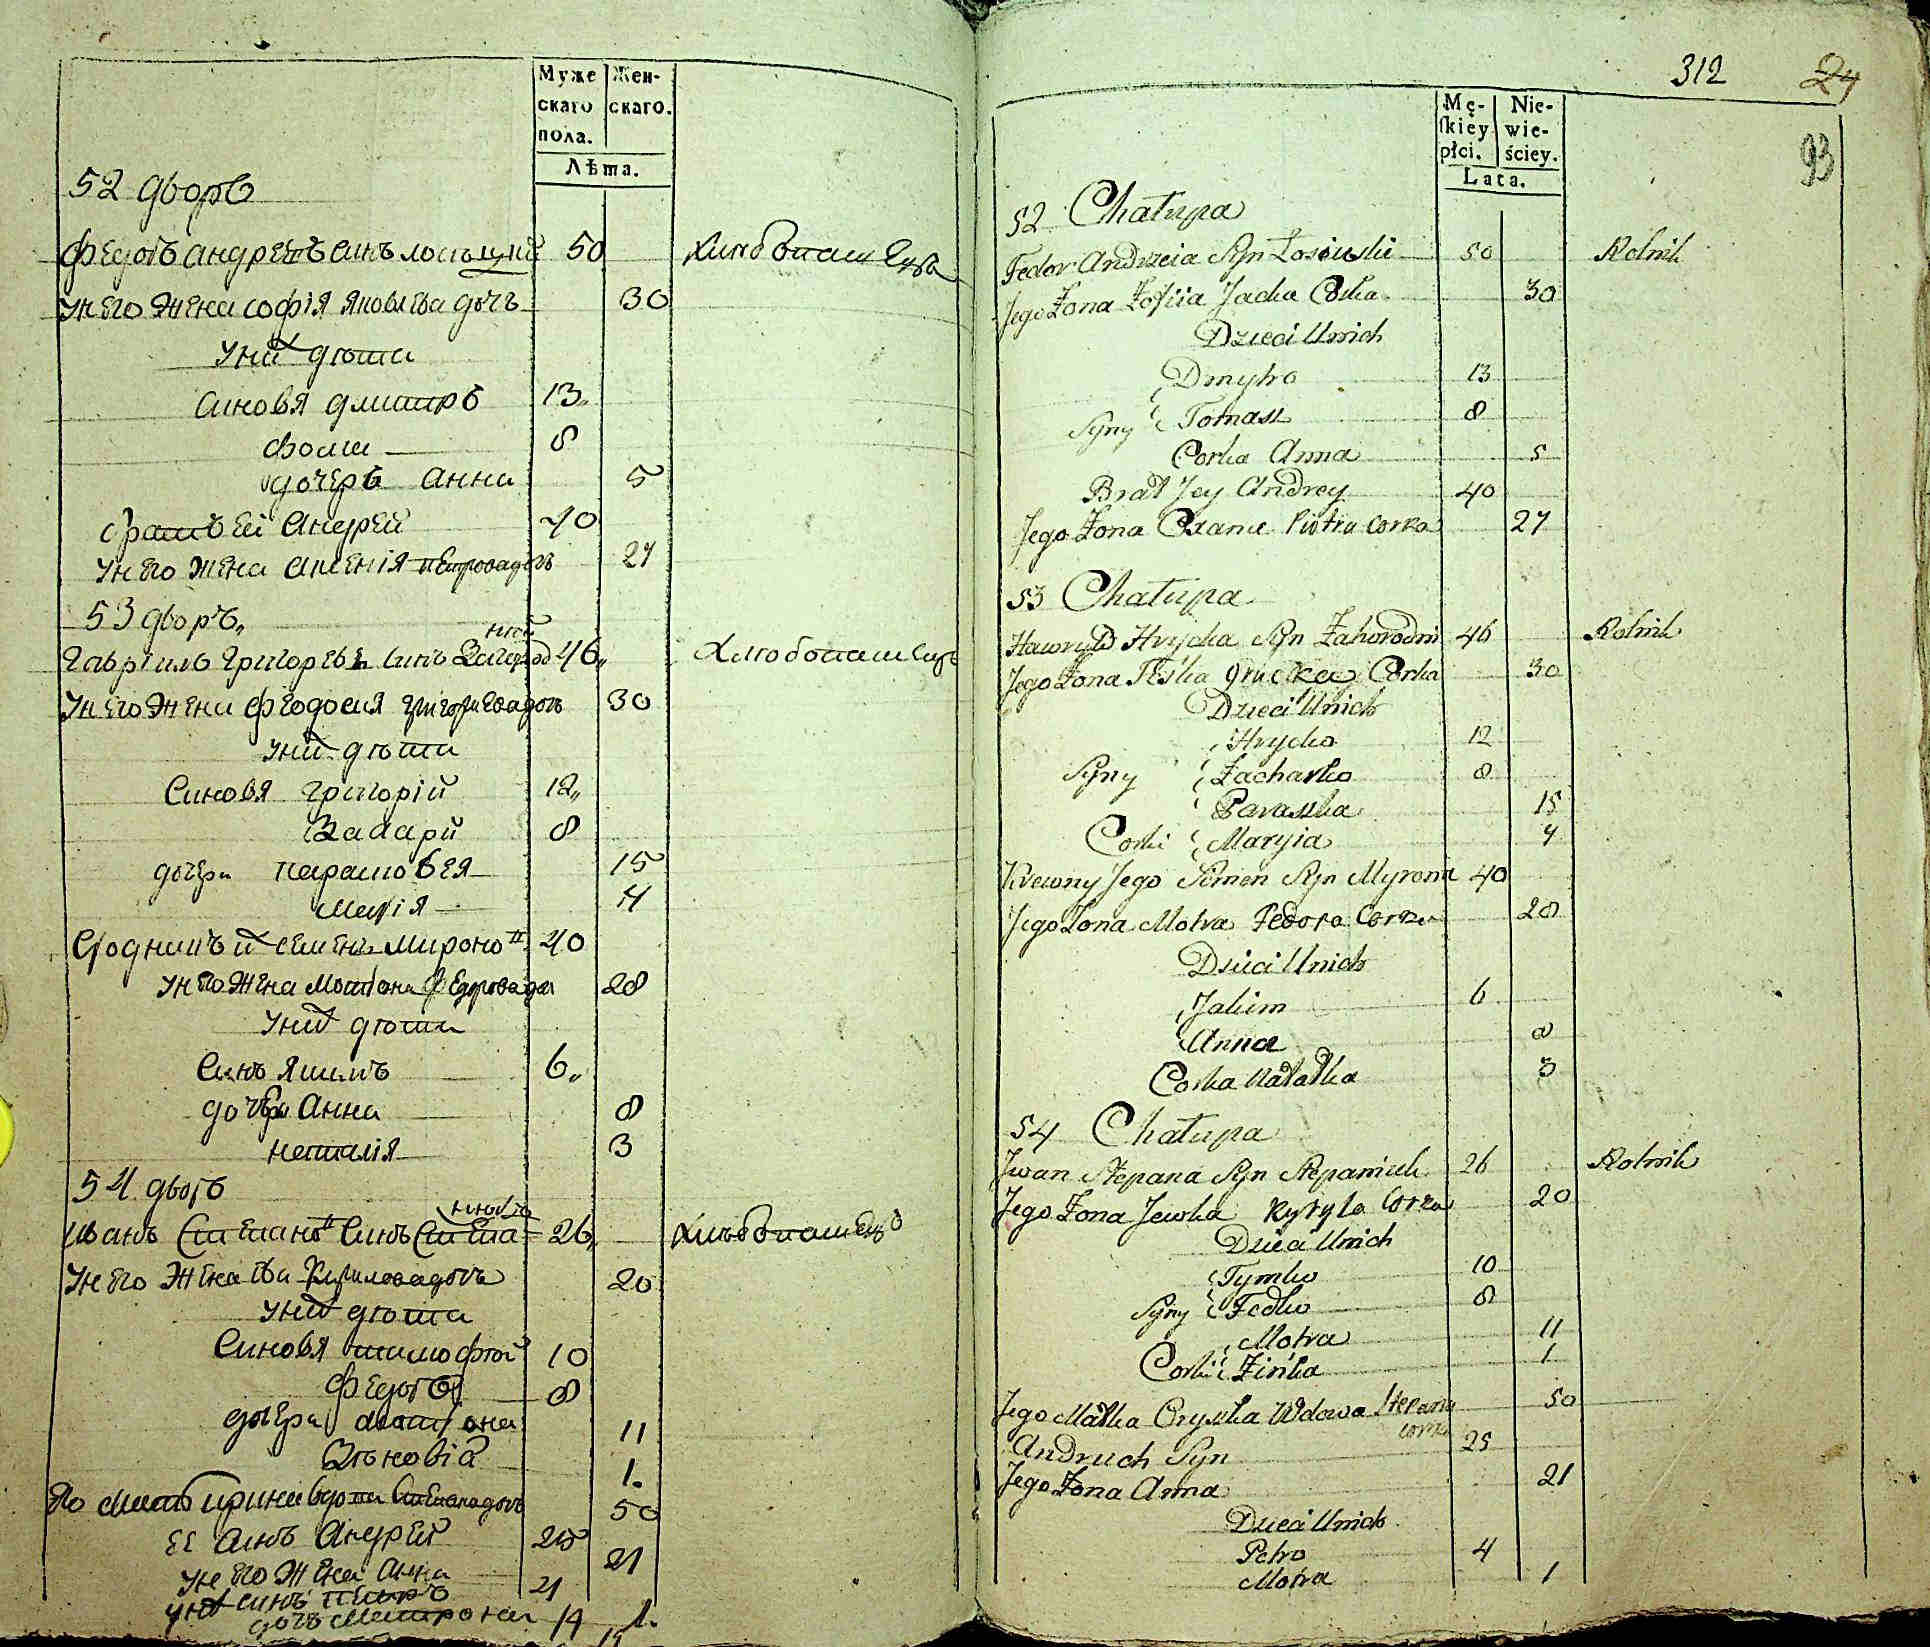 Муже
скаго
пола.
Жен-
скаго.
Лѣта.
52 дворъ
Федоръ андреевъ синъ 50
у него жена софія яковлева дочъ 30
у них дѣти
синовя дмитръ 13
фома 8
дочерь анна 5
братъ ей андрей 40
у него жена ксенія петрова дочъ 27
53 дворъ
гавріилъ григорьевъ синъ загород 46 хлѣбопашецъ
ній
у него жена феодосия григориева дочъ 30
у них дѣти
синовя григорій 12
захарій 8
дочери парасковея 15
марія 4
сродникъ семенъ мироно 40
у него жена мотрона федорова доч 28
у них дѣти
синъ якимъ 6
дочери анна 8
наталія 3
54 дворъ
иванъ степановъ синъ степа 26 хлѣбопашецъ
у него жена ева кирилова дочъ 20
у них дѣти
синовя тимофей 10
федоръ 8
дочери мотрона 11
зѣновія 1
его мать ирина вдова степанова дочъ 50
ее синъ андрей 25
у него жена анна 21
у них синъ петръ 4
дочъ матрона 1
312 24
93
Mę-
ſkiey
płci.
Nie-
wie-
ściey.
Lata.
52 Chałupa
Fedor Andrzeia Syn Łosiuski 50 Rolnik
Jego Żona Zofiia Jacka Corka 30
Dzieci Unich
Dmytro 13
Syny Tomasz 8
Corka Anna 5
Brat Jey Andrey 40
Jego Żona Piotra Corka 27
53 Chałupa
Hawryło Hrycka Syn Zahorodni 46 Rolnik
Jego Żona Teśka Grucka Corka 30
Dzieci Unich
Hrycko 12
Syny Zacharko 8
Paraszka 15
Corki Maryia 4
Krewny Jego Semen Syn Myrona 40
Jego Żona Motra Fedora Corka 28
Dzieci Unich
Jakim 6
Anna 8
Corka Natałka 3
54 Chałupa
Jwan Stepana Syn Stepaniuk 26 Rolnik
Jego Żona Jewka Kyryla Corka 20
Dzieci Unich
Tymko 10
Syny Fedko 8
Motra 11
Corki Zińka 1
Jego Matka Oryszka Wdowa Stepana 50
corka
Andruch Syn 25
Jego Żona Anna 21
Dzieci Unich
Petro 4
Motra 1